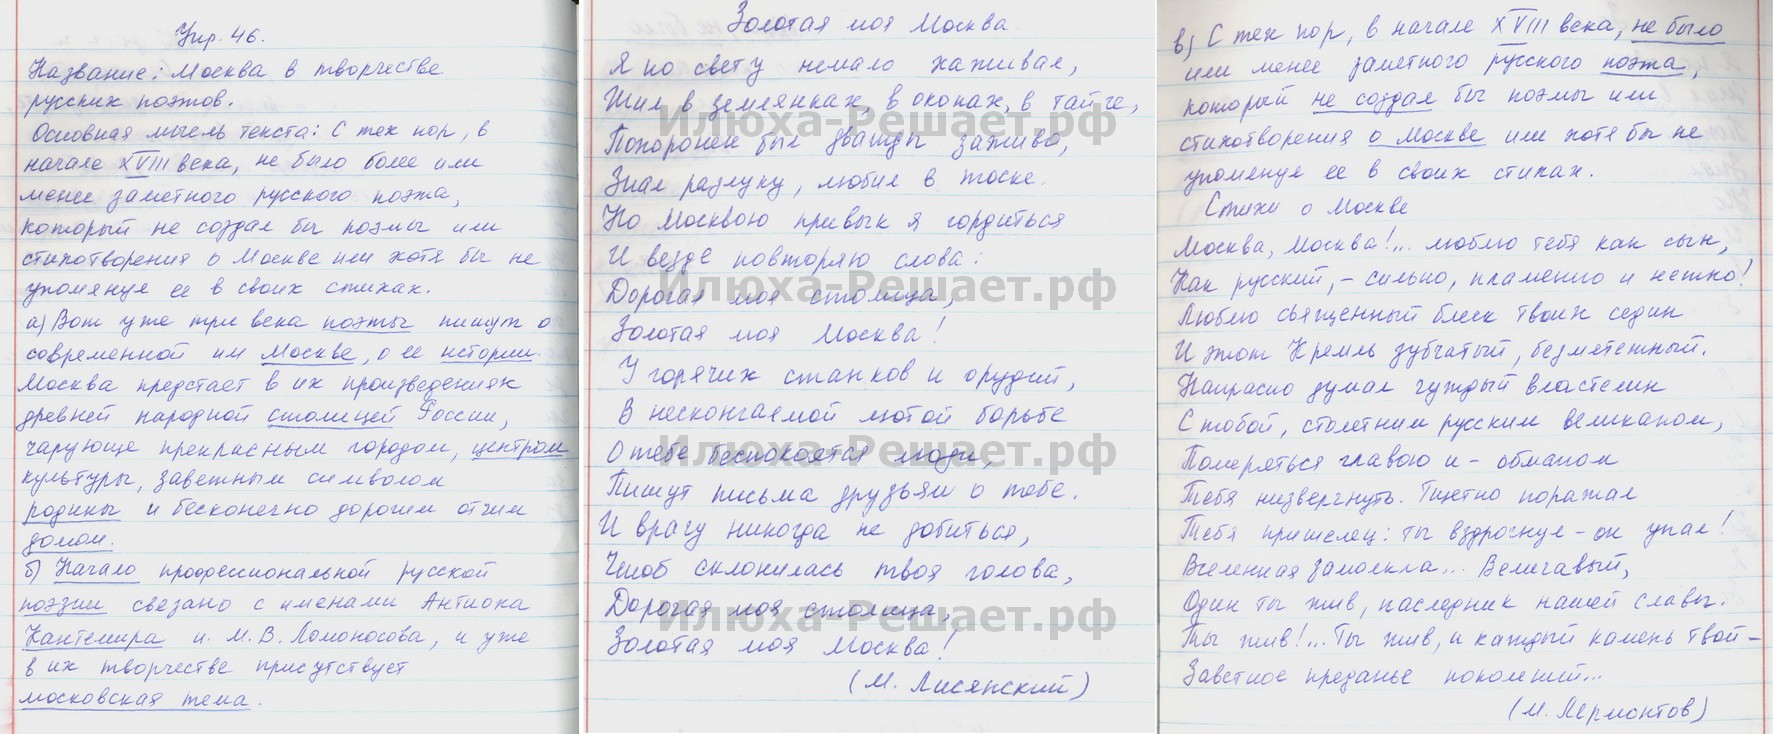 Упр. 46.
Название: Москва в творчестве
русских поэтов.
Основная мысль текста: С тех пор, в
начале XVIII века, не было более или
менее заметного русского поэта,
который не создал бы поэмы или
стихотворения о Москве или хотя бы не
упомянул ее в своих стихах.
а) Вот уже три века поэты пишут о
современной им Москве, о ее истории.
Москва предстает в их произведениях
древней народной столицей России,
чарующе прекрасным городом, центром
культуры, заветным символом
родины и бесконечно дорогим отчим
домом.
б) Начало профессиональной русской
поэзии связано с именами Антиоха
Кантемира и М.В. Ломоносова, и уже
в их творчестве присутствует
московская тема.
Золотая моя Москва
Я по свету немало хаживал,
Жил в землянках, в окопах, в тайге,
Похоронен был дважды заживо,
Знал разлуку, любил в тоске.
Но Москвою привык я гордиться
И везде повторяю слова:
Дорогая моя столица,
Золотая моя Москва!
У горячих станков и орудий,
В нескончаемой лютой борьбе
О тебе беспокоятся люди,
Пишут письма друзьям о тебе.
И врагу никогда не добиться,
Чтоб склонилась твоя голова,
Дорогая моя столица,
Золотая моя Москва!
(М. Лисянский)
в) С тех пор, в начале XVIII века, не было
или менее заметного русского поэта,
который не создал бы поэмы или
стихотворения о Москве или хотя бы не
упомянул ее в своих стихах.
Стихи о Москве
Москва, Москва!... люблю тебя как сын,
Как русский, - сильно, пламенно и нежно!
Люблю священный блеск твоих седин
И этот Кремль зубчатый, безмятежный.
Напрасно думал чуждый властелин
С тобой, столетним русским великаном,
Померяться главою и - обманом
Тебя низвергнуть. Тщетно поражал
Тебя пришлец: ты вздрогнул - он упал!
Вселенная замолкла... Величавый,
Один ты жив, наследник нашей славы.
Ты жив!... Ты жив, и каждый камень твой -
Заветное преданье поколений...
(М. Лермонтов)
Илюха-Решает.рф
Илюха-Решает.рф
Илюха-Решает.рф
Илюха-Решает.рф